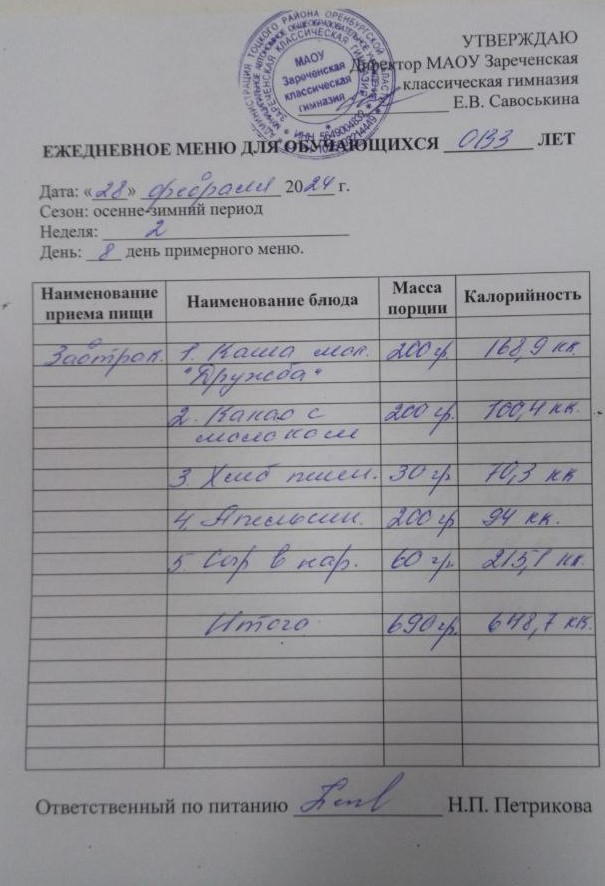 УТВЕРЖДАЮ
Директор МАОУ Зареченская
классическая гимназия
Е.В. Савоськина
МАОУ
Зареченская
классическая
гимназия
ЕЖЕДНЕВНОЕ МЕНЮ ДЛЯ ОБУЧАЮЩИХСЯ ОВЗ ЛЕТ
Дата: «28» февраля 2024 г.
Сезон: осенне-зимний период
Неделя: 2
День: 8 день примерного меню.
Наименование приема пищи Наименование блюда Масса порции Калорийность
Завтрак. 1. Каша мол. 200 гр. 168,9 кк.
"Дружба"
2. Какао с 200 гр. 100,4 кк.
молоком
3. Хлеб пшен. 30 гр. 70,3 кк
4. Апельсин. 200 гр 94 кк.
5. Сыр в нар. 60 гр. 215,1 кк.
Итого 690 гр. 648,7 кк.
Ответственный по питанию Н.П. Петрикова